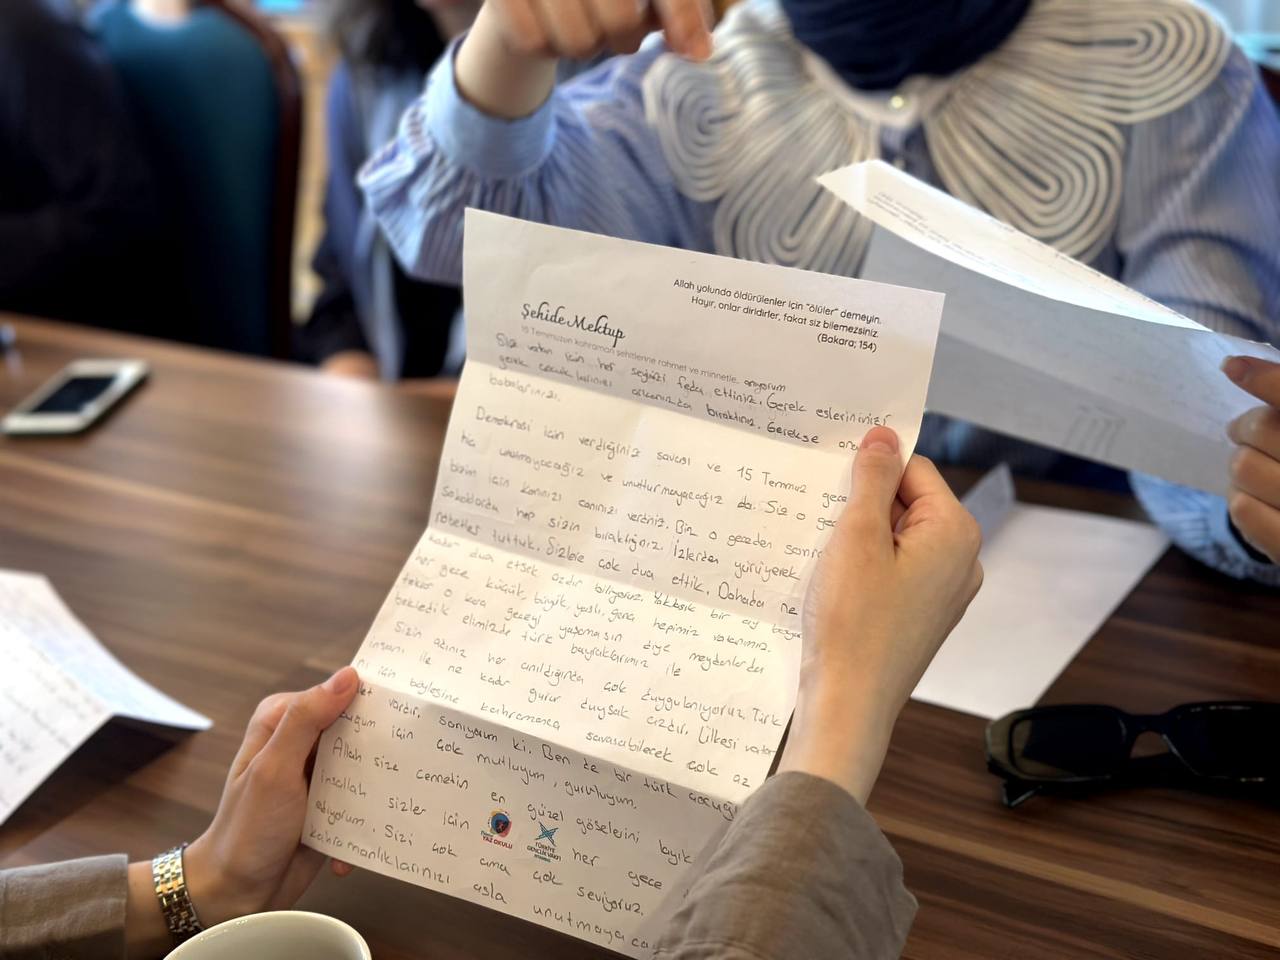 Allah yolunda öldürülenler için "ölüler" demeyin.
Hayır, onlar diridirler, fakat siz bilemezsiniz.
(Bakara; 154)
Şehide Mektup
15 Temmuzun kahraman şehitlerine rahmet ve minnetle, anıyorum
Siz vatan için her şeyinizi feda ettiniz. Gerek eşlerininizi
gerek çocuklarınızı arkanızda bıraktınız. Gerekse ana
babalarınızı.
Demokrasi için verdiğiniz savaşı ve 15 Temmuz gece
hiç unutmayacağız ve unutturmayacağız da. Siz o gec
bizim için kanınızı canınızı verdiniz. Biz o geceden sonra
sokaklarda hep sizin bıraktığınız izlerden yürüyerek
nöbetler tuttuk. Sizlere çok dua ettik. Dahada ne
kadar dua etsek azdır biliyoruz. Yaklaşık bir ay
her gece küçük, büyük, yaşlı, genç hepimiz vatanımız.
tekrar o kara geceyi yaşamasın diye meydanlarda
bekledik elimizde türk bayraklarımız ile
Sizin adınız her anıldığında çok duygulanıyoruz. Türk
insanı ile ne kadar gurur duysak azdır. Ülkesi vatan
nı için böylesine kahramanca savaşabilecek çok az
let vardır, sanıyorum ki. Ben de bir türk çocuğu
duğum için çok mutluyum, gururluyum.
Allah size cennetin en güzel göşelerini layık
inşallah sizler için her gece
ediyorum. Sizi çok ama çok seviyoruz.
kahramanlıklarınızı asla unutmaya
YAZ OKULU
TÜRKİYE
GENÇLİK VAKFI